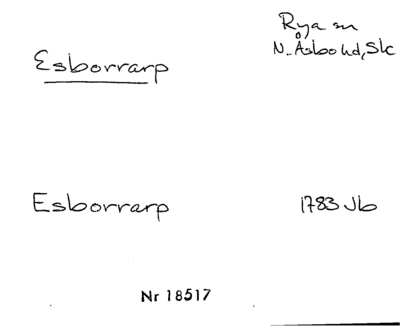 Esborrarp
Rya sn
N. Åsbo hd, Sk
Esborrarp
1783 Jb
Nr 18517